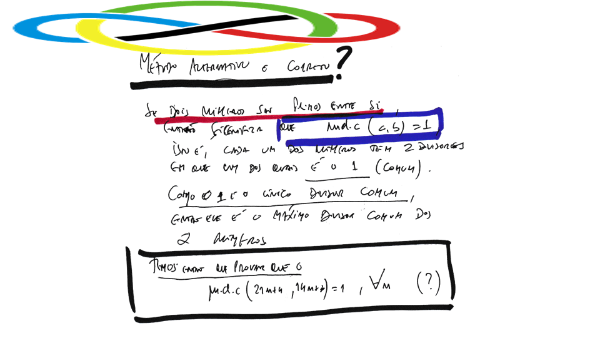 MÉTODO ALTERNATIVO E CORRETO?
SE DOIS NÚMEROS SÃO PRIMOS ENTRE SI,
ENTÃO SIGNIFICA QUE m.d.c (a,b) = 1
ISTO É, CADA UM DOS NÚMEROS TEM 2 DIVISORES
EM QUE UM DOS QUAIS É O 1 (COMUM).
COMO O 1 É O ÚNICO DIVISOR COMUM,
ENTÃO ELE É O MÁXIMO DIVISOR COMUM DOS
2 NÚMEROS
TEMOS ENTÃO QUE PROVAR QUE O
m.d.c (21n+4, 14n+3) = 1, ∀n (?)